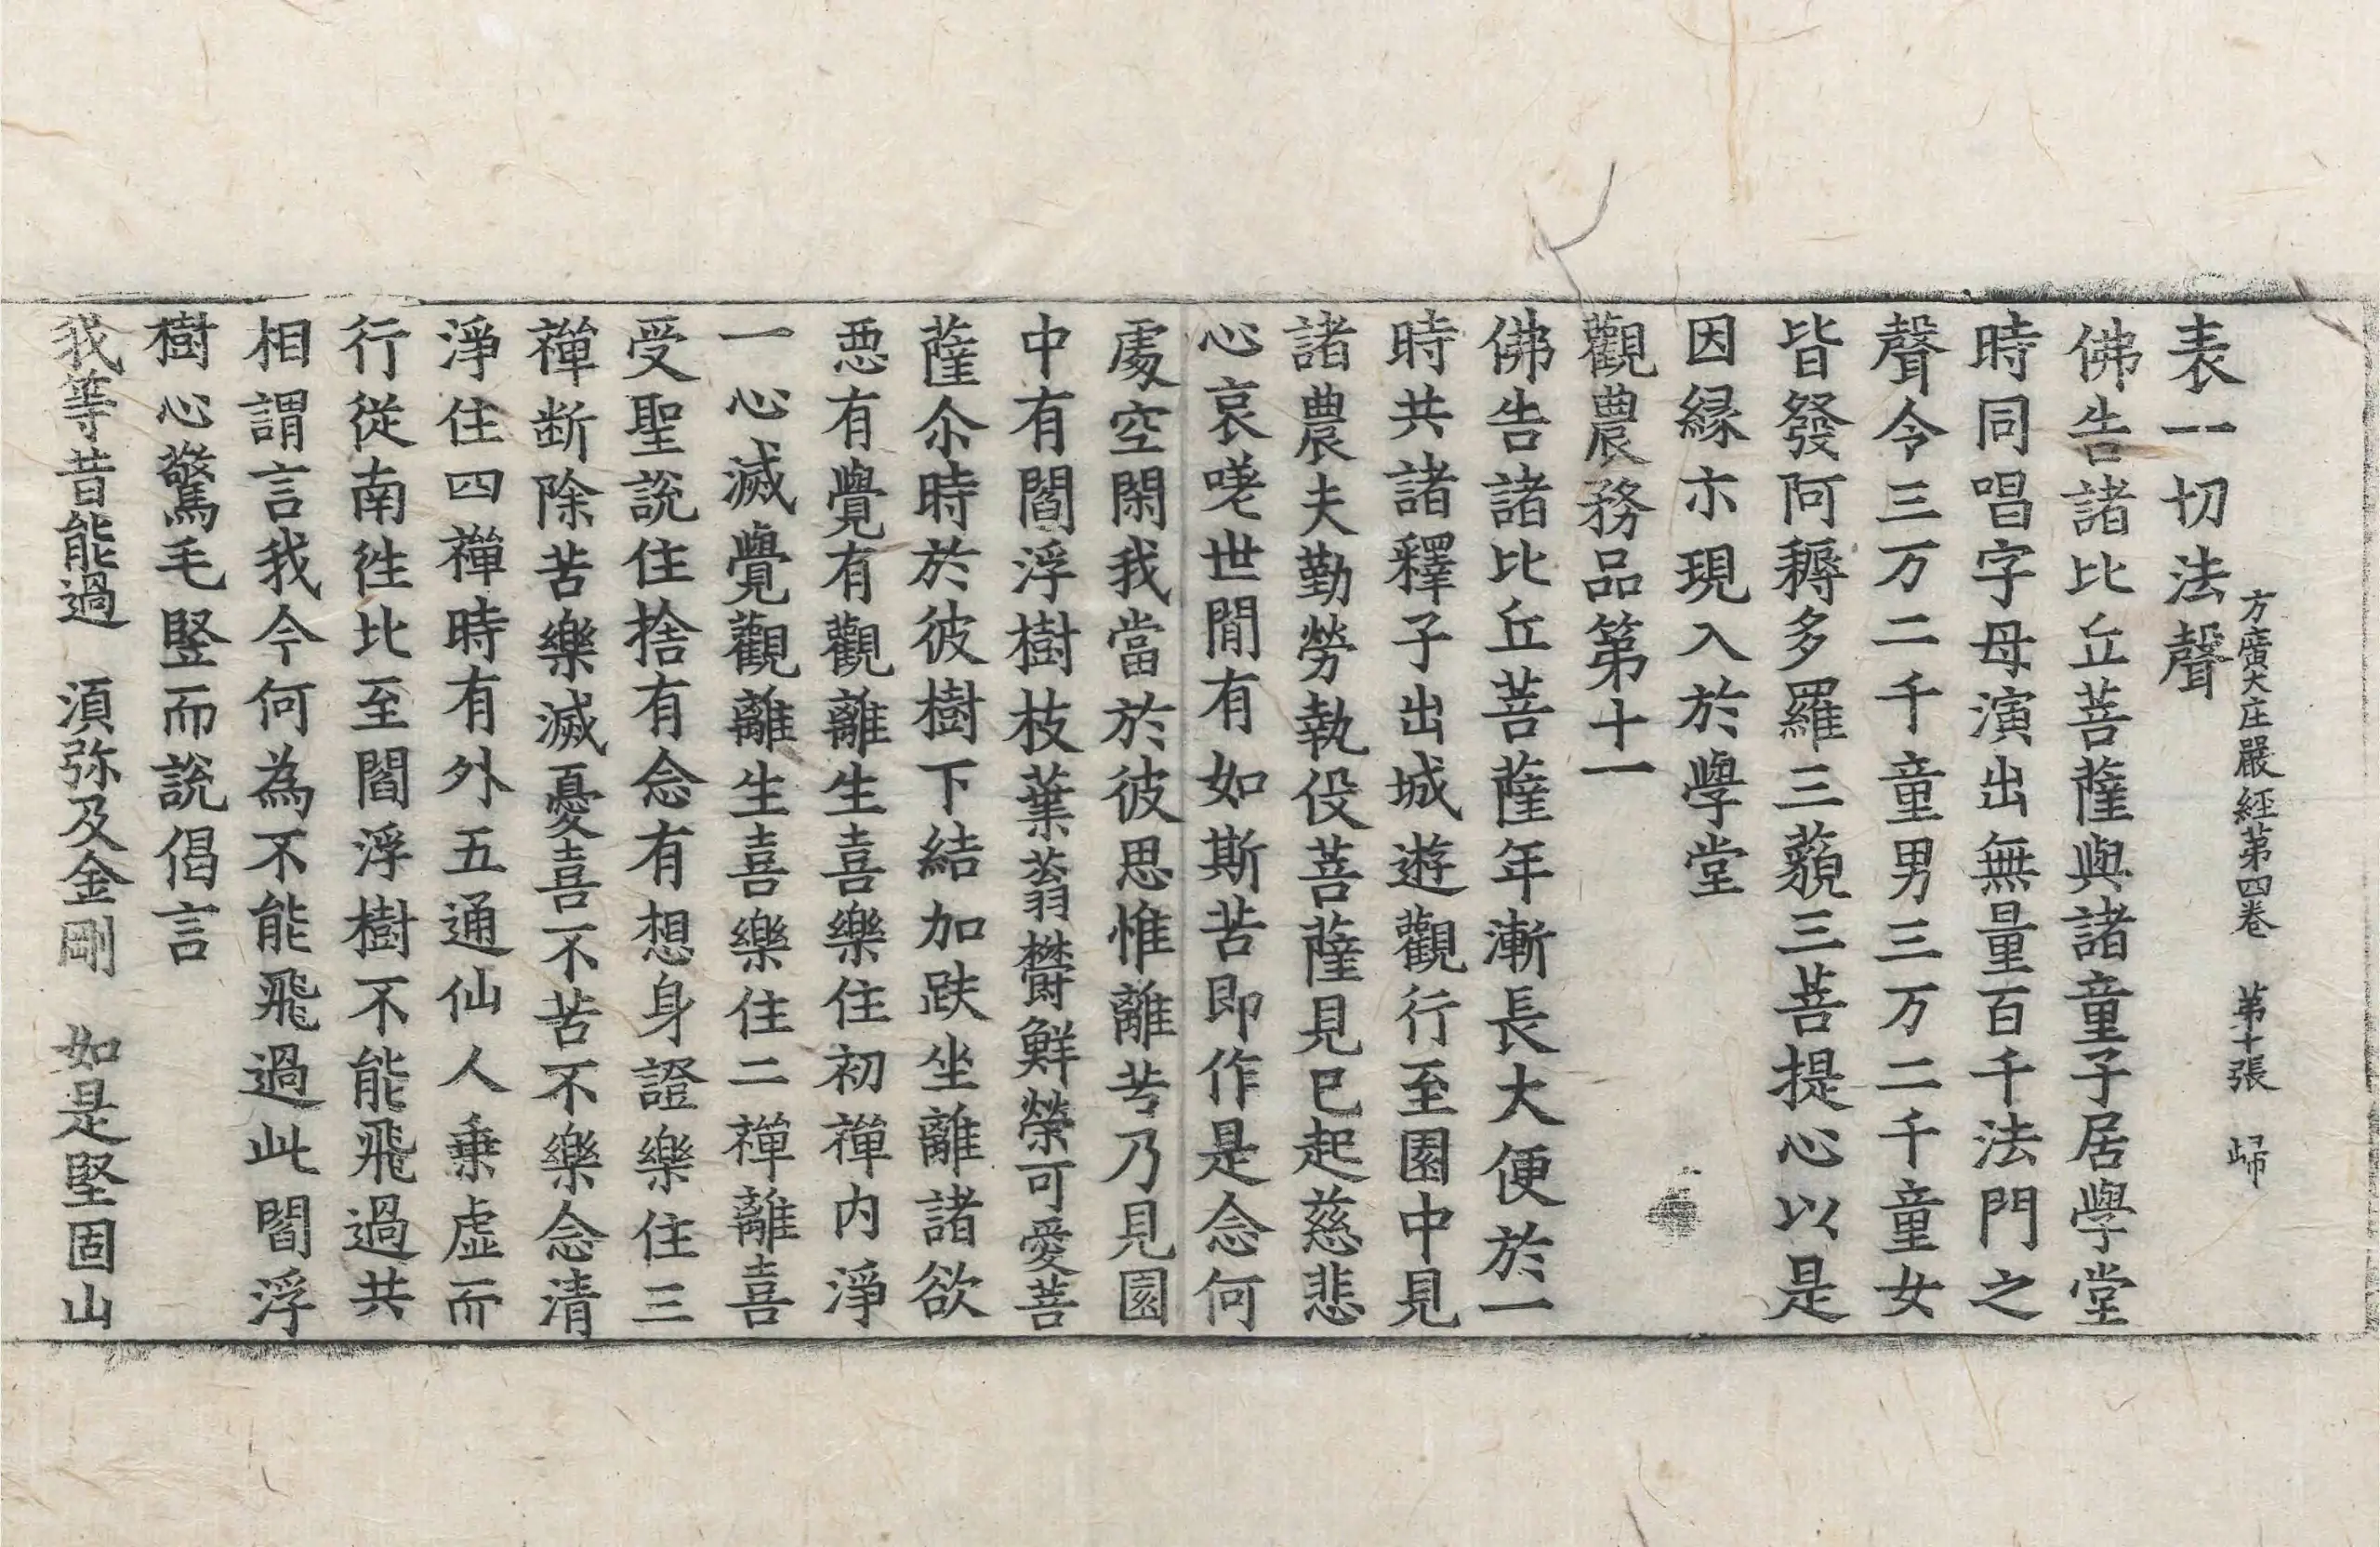 方廣大庄嚴經第四卷　第十張　歸
表一切法聲
佛告諸比丘菩薩與諸童子居學堂
時同唱字母演出無量百千法門之
聲令三万二千童男三万二千童女
皆發阿耨多羅三藐三菩提心以是
因縁亦現入於學堂
觀農務品第十一
佛告諸比丘菩薩年漸長大便於一
時共諸釋子出城遊觀行至園中見
諸農夫勤勞執役菩薩見已起慈悲
心哀嗟世閒有如斯苦即作是念何
處空閑我當於彼思惟離苦乃見園
中有閻浮樹枝葉蓊欝鮮榮可愛菩
薩尒時於彼樹下結加趺坐離諸欲
惡有覺有觀離生喜樂住初禪内淨
一心滅覺觀離生喜樂住二禪離喜
受聖說住捨有念有想身證樂住三
禪断除苦樂滅憂喜不苦不樂念清
淨住四禪時有外五通仙人乗虛而
行從南往比至閻浮樹不能飛過共
相謂言我今何為不能飛過此閻浮
樹心驚毛竪而說偈言
我等昔能過　湏弥及金剛　如是堅固山